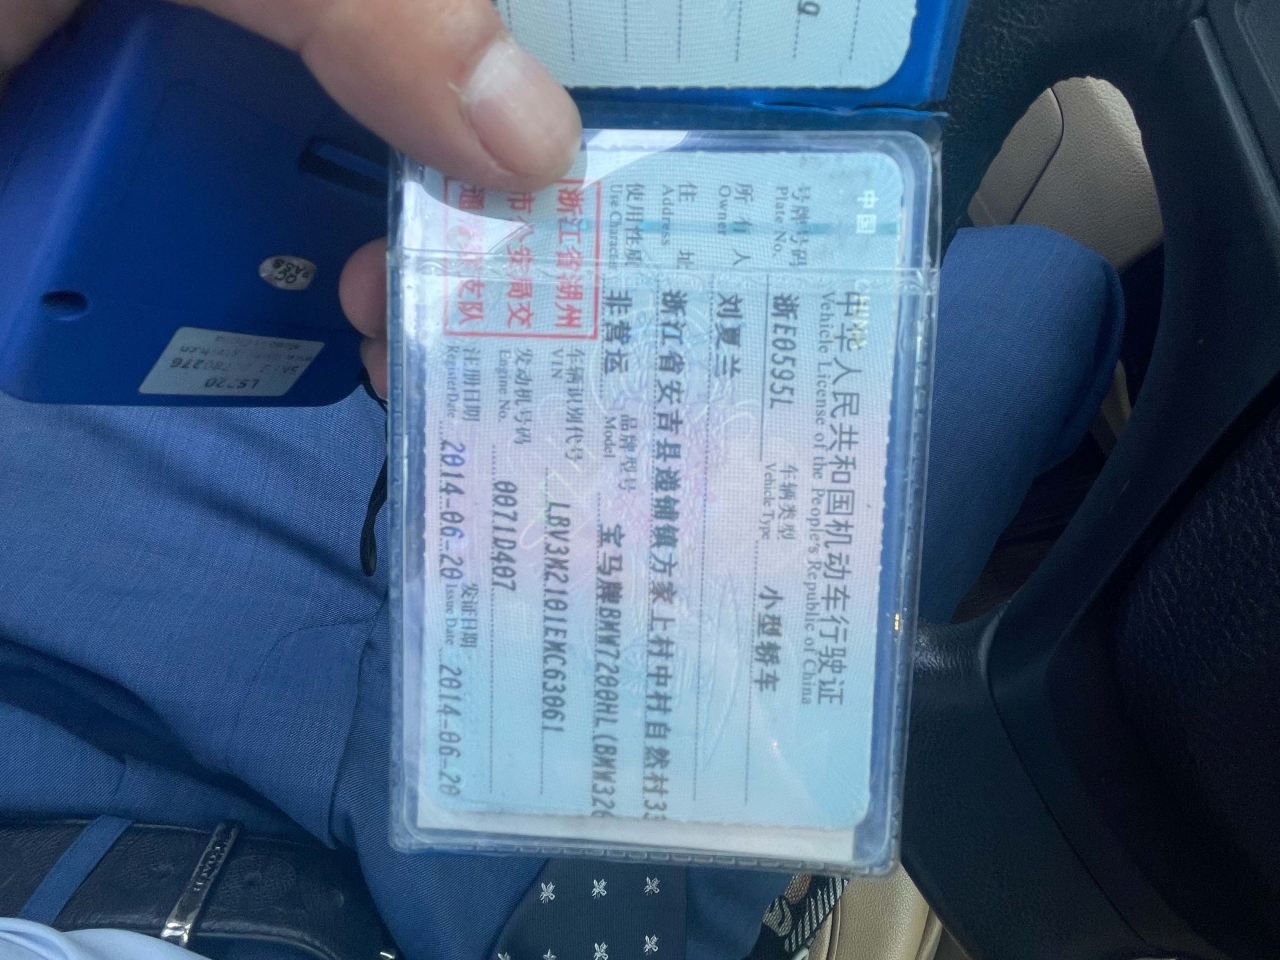 中国
CHINA
中华人民共和国机动车行驶证
Vehicle License of the People's Republic of China
号牌号码 浙E0595L 车辆类型 小型轿车
Plate No. Vehicle Type
所有人 刘夏兰
Owner
住址 浙江省安吉县递铺镇方家上村中村自然村33
Address
使用性质 非营运 品牌型号 宝马牌BMW7200HL(BMW326
Use Character Model
浙江省湖州
市公安局交
通警察支队
车辆识别代号 LBV3M2101EMC63061
VIN
发动机号码 0071D407
Engine No.
注册日期 2014-06-20 发证日期 2014-06-20
Register Date Issue Date
QC
PASS
LS220
COACH